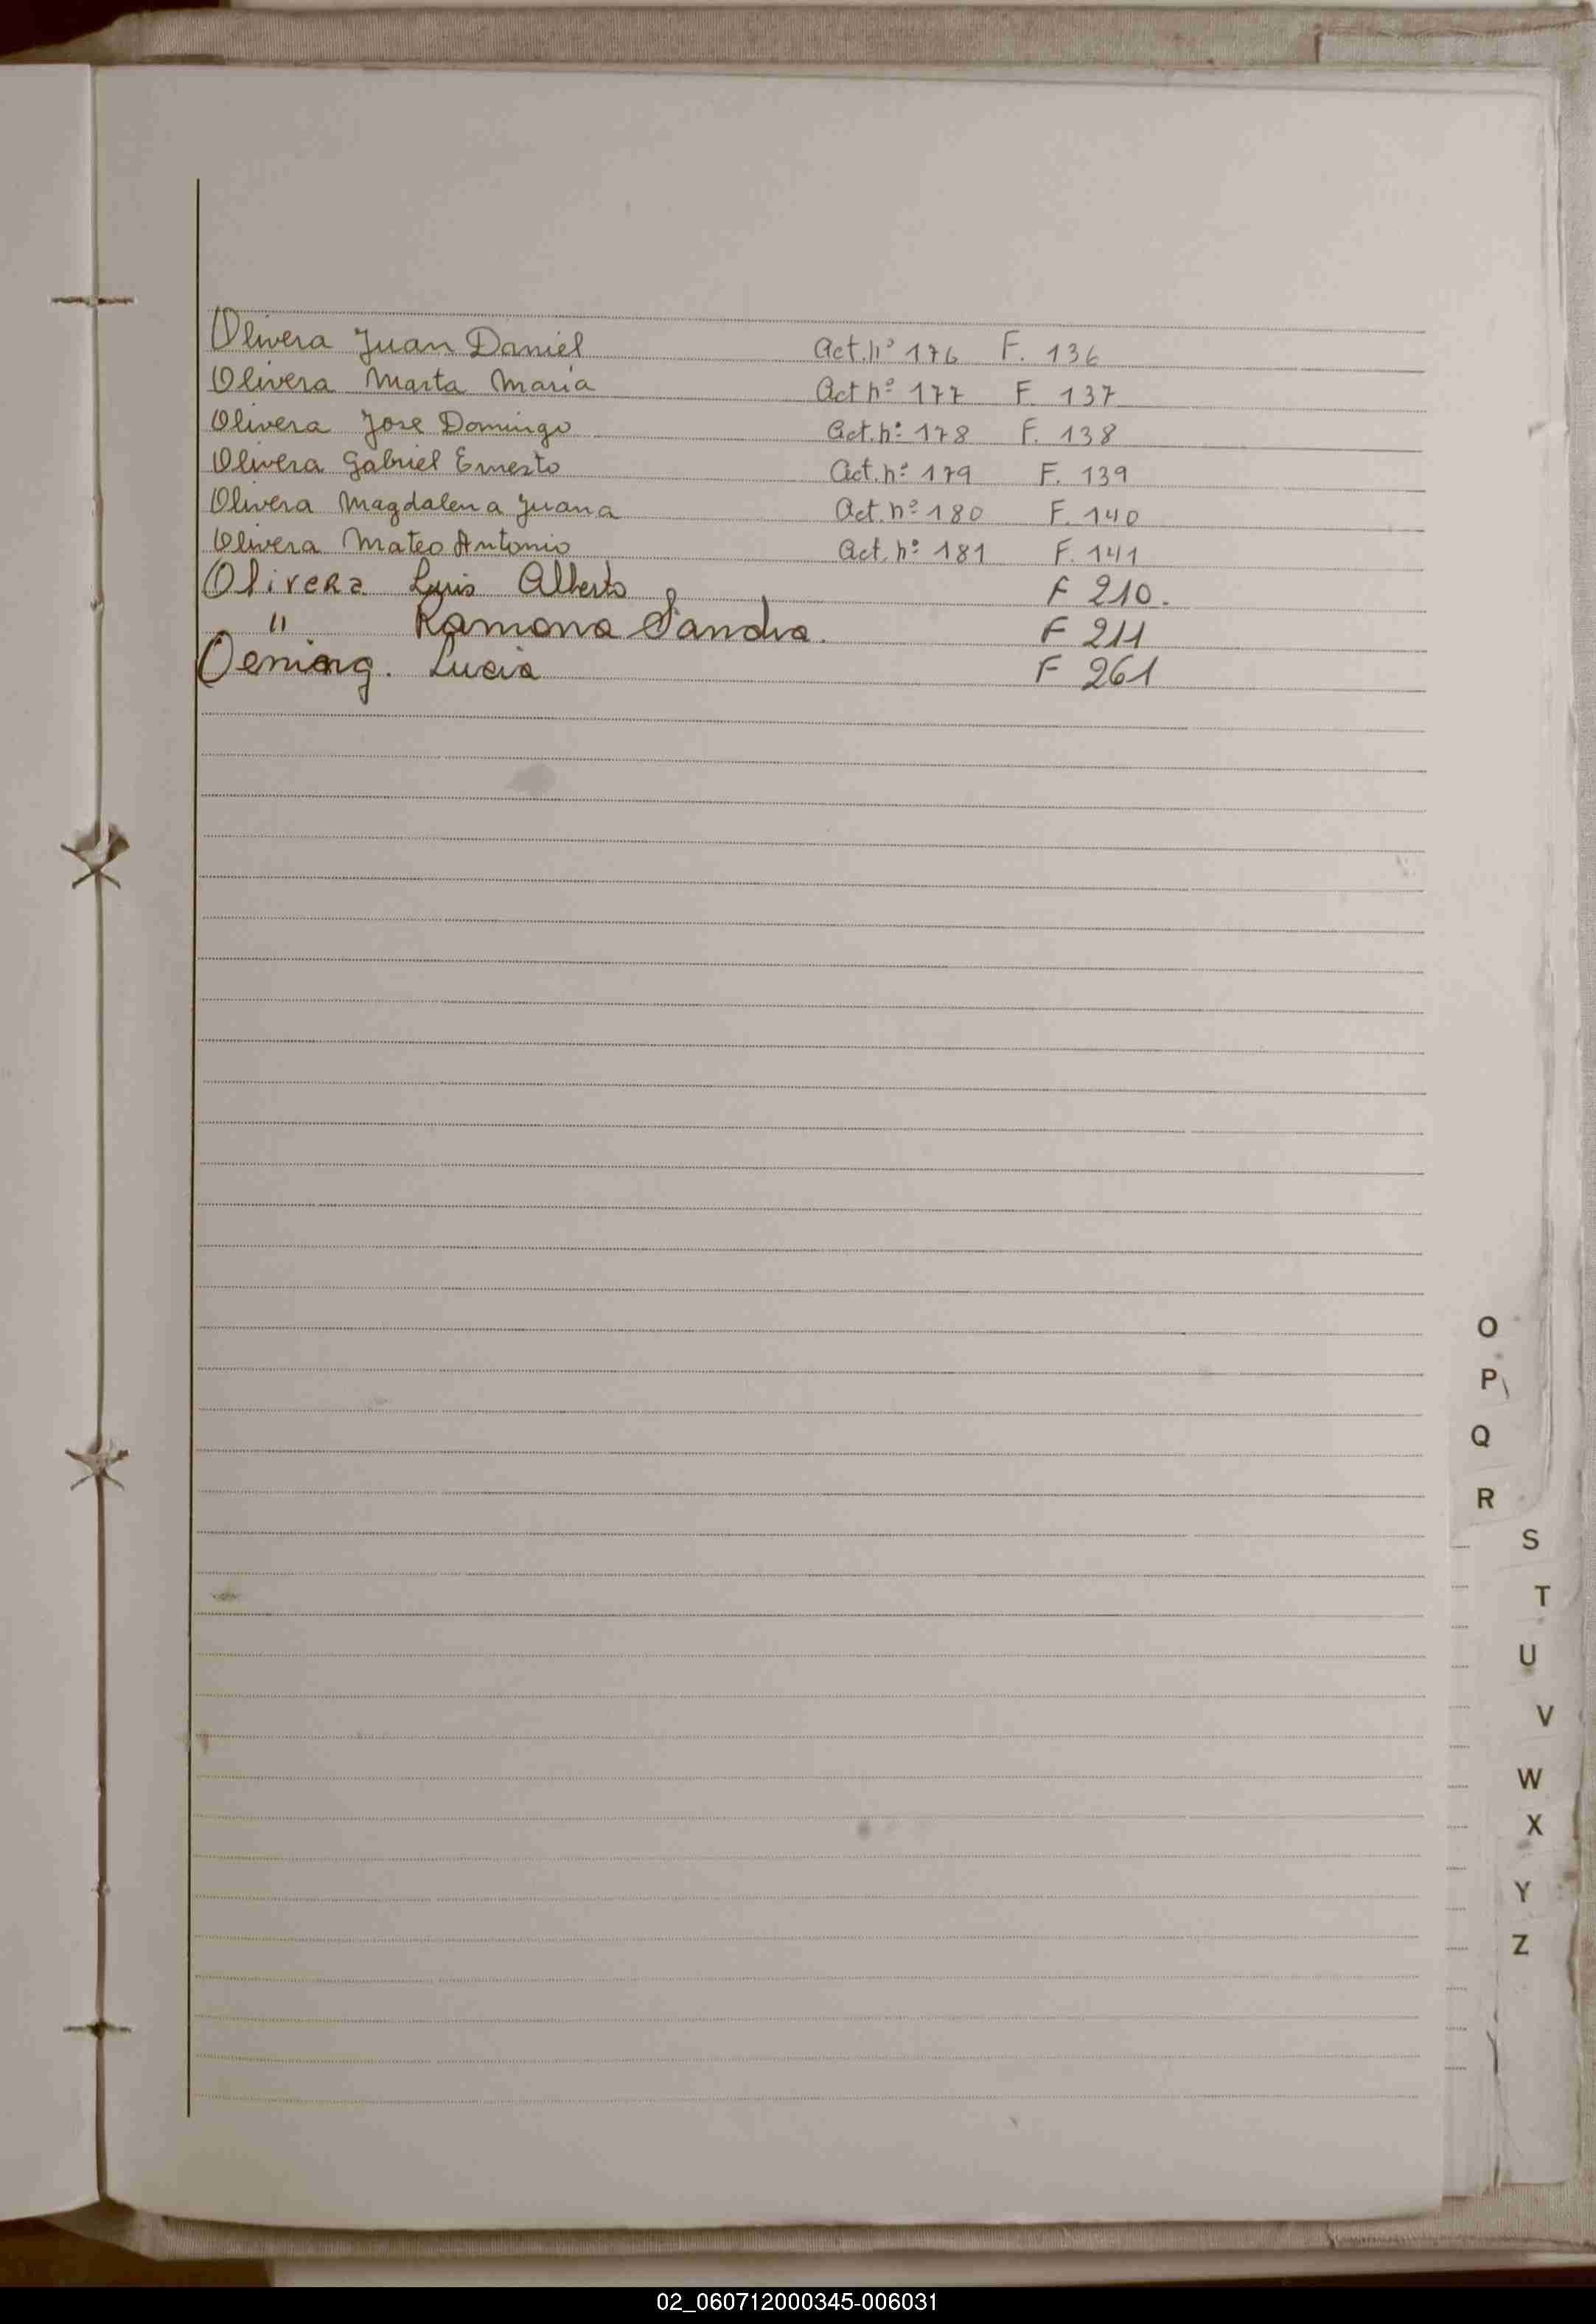 Olivera Juan Daniel Act. nº 176 F. 136
Olivera Marta Maria Act nº 177 F. 137
Olivera Jose Domingo Act. nº 178 F. 138
Olivera Gabriel Ernesto Act. nº 179 F. 139
Olivera Magdalena Juana Act. nº 180 F. 140
Olivera Mateo Antonio Act. nº 181 F. 141
Olivera Luis Alberto F 210.
" Ramona Sandra. F 211
Lucia F 261
O
P
Q
R
S
T
U
V
W
X
Y
Z
02_060712000345-006031